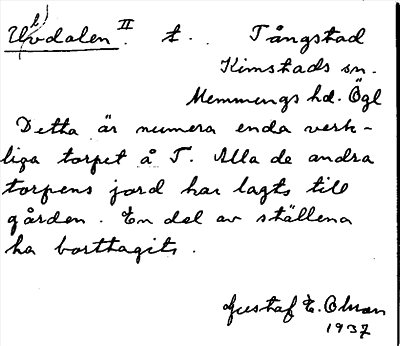 Uvdalen II. t. Tångstad
Kimstads sn.
Memmings hd. Ögl
Detta är numera enda verk-
liga torpet å T. Alla de andra
torpens jord har lagts till
gården. En del av ställena
ha borttagits.
Gustaf E. Olsson
1937